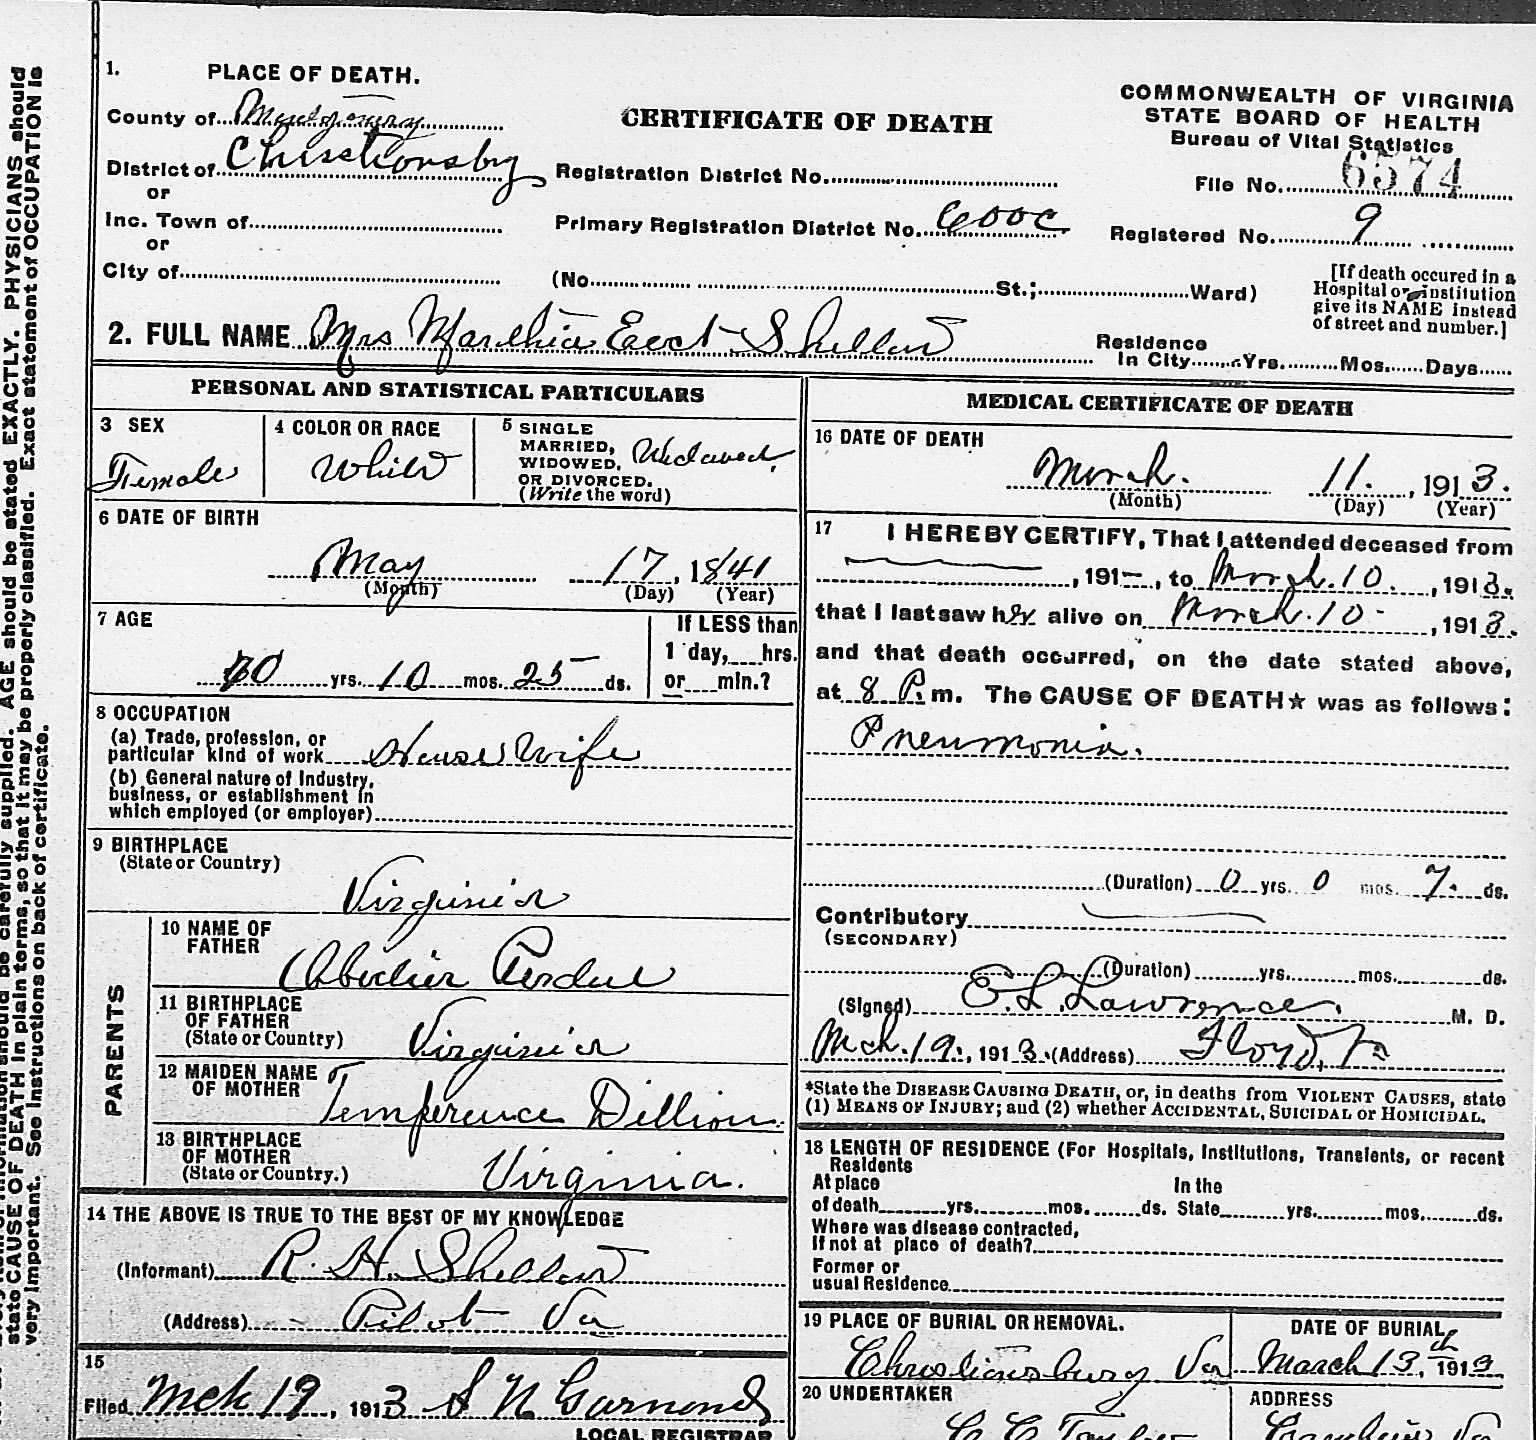 1. PLACE OF DEATH.
County of Montgomery
District of Christionsbrg
or
Inc. Town of
or
City of
CERTIFICATE OF DEATH
Registration District No.
Primary Registration District No. 600C
(No. St.; Ward)
COMMONWEALTH OF VIRGINIA
STATE BOARD OF HEALTH
Bureau of Vital Statistics
File No. 6574
Registered No. 9
[If death occured in a
Hospital or institution
give its NAME instead
of street and number.]
2. FULL NAME Mrs Marthia Shellor
Residence
In City Yrs. Mos. Days
PERSONAL AND STATISTICAL PARTICULARS
3 SEX
Female
4 COLOR OR RACE
White
5 SINGLE
MARRIED,
WIDOWED,
OR DIVORCED.
(Write the word)
Widowed
6 DATE OF BIRTH
May 17, 1841
(Month) (Day) (Year)
7 AGE
70 yrs. 10 mos. 25 ds.
If LESS than
1 day, hrs.
or min.?
8 OCCUPATION
(a) Trade, profession, or
particular kind of work House Wife
(b) General nature of Industry,
business, or establishment in
which employed (or employer)
9 BIRTHPLACE
(State or Country)
Virginia
PARENTS
10 NAME OF
FATHER
Obedier Perdue
11 BIRTHPLACE
OF FATHER
(State or Country)
Virginia
12 MAIDEN NAME
OF MOTHER
Temperence Dillion
13 BIRTHPLACE
OF MOTHER
(State or Country.)
Virginia.
14 THE ABOVE IS TRUE TO THE BEST OF MY KNOWLEDGE
(Informant) R. H. Shellor
(Address) Pilot Va
15
Filed Mch 19, 1913 S N Garnond
LOCAL REGISTRAR
MEDICAL CERTIFICATE OF DEATH
16 DATE OF DEATH
March. 11. , 1913.
(Month) (Day) (Year)
17 I HEREBY CERTIFY, That I attended deceased from
, 191–, to March. 10. , 1913.
that I last saw her alive on March. 10 - , 1913.
and that death occurred, on the date stated above,
at 8 P.m. The CAUSE OF DEATH★ was as follows:
Pneumonia.
(Duration) 0 yrs. 0 mos. 7. ds.
Contributory
(SECONDARY)
(Duration) yrs. mos. ds.
(Signed) E. L. Lawrence. M. D.
Mch. 19., 1913. (Address) Floyd, Va
*State the DISEASE CAUSING DEATH, or, in deaths from VIOLENT CAUSES, state
(1) MEANS OF INJURY; and (2) whether ACCIDENTAL, SUICIDAL or HOMICIDAL.
18 LENGTH OF RESIDENCE (For Hospitals, Institutions, Transients, or recent
Residents
At place In the
of death yrs. mos. ds. State yrs. mos. ds.
Where was disease contracted,
If not at place of death?
Former or
usual Residence
19 PLACE OF BURIAL OR REMOVAL.
Christiansburg Va
DATE OF BURIAL
March 13th, 1913
20 UNDERTAKER
ADDRESS
AGE should be stated EXACTLY. PHYSICIANS should
state CAUSE OF DEATH in plain terms, so that it may be properly classified. Exact statement of OCCUPATION is
very important. See instructions on back of certificate.